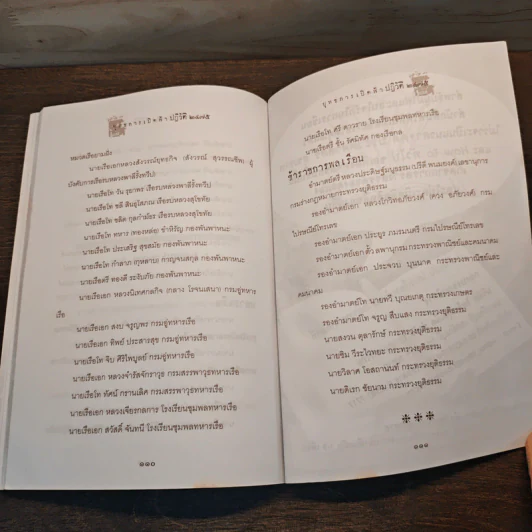 ยุทธการเปิดฟ้า ปฏิวัติ ๒๔๗๕
นายเรือเอกหลวงสังวรณ์ยุทธกิจ (สังวรณ์ สุวรรณชีพ) ผู้
บังคับการเรือรบหลวงพาลีรั้งทวีป
นายเรือโท วัน รุยาพร เรือรบหลวงพาลีรั้งทวีป
นายเรือโท ชลี สินธุโสภณ เรือรบหลวงสุโขทัย
นายเรือโท ชลิต กุลกำม์ธร เรือรบหลวงสุโขทัย
นายเรือโท ทหาร (ทองหล่อ) ขำหิรัญ กองพันพาหนะ
นายเรือโท ประเสริฐ สุขสมัย กองพันพาหนะ
นายเรือโท กำลาภ (กุหลาบ) กาญจนสกุล กองพันพาหนะ
นายเรือตรี ทองดี ระงับภัย กองพันพาหนะ
นายเรือเอก หลวงนิเทศกลกิจ (กลาง โรจนเสนา) กรมอู่ทหาร
เรือ
นายเรือเอก สงบ จรูญพร กรมอู่ทหารเรือ
นายเรือเอก ทิพย์ ประสานสุข กรมอู่ทหารเรือ
นายเรือโท จิบ ศิริไพบูลย์ กรมอู่ทหารเรือ
นายเรือเอก หลวงจำรัสจักราวุธ กรมสรรพาวุธทหารเรือ
นายเรือโท ทัศน์ กรานเลิศ กรมสรรพาวุธทหารเรือ
นายเรือเอก หลวงเจียรกลการ โรงเรียนชุมพลทหารเรือ
นายเรือเอก สวัสดิ์ จันทนี โรงเรียนชุมพลทหารเรือ
๑๑๐
ยุทธการเปิดฟ้า ปฏิวัติ ๒๔๗๕
นายเรือโท ศรี ดาวราย โรงเรียนชุมพลทหารเรือ
นายเรือตรี ชั้น รัศมิทัต กองเรือกล
ข้าราชการพลเรือน
อำมาตย์ตรี หลวงประดิษฐ์มนูธรรม (ปรีดี พนมยงค์) เลขานุการ
กรมร่างกฎหมายกระทรวงยุติธรรม
รองอำมาตย์เอก หลวงโกวิทอภัยวงศ์ (ควง อภัยวงศ์) กรม
ไปรษณีย์โทรเลข
รองอำมาตย์เอก ประยูร ภมรมนตรี กรมไปรษณีย์โทรเลข
รองอำมาตย์เอก ตั้ว ลพานุกรม กระทรวงพาณิชย์และคมนาคม
รองอำมาตย์เอก ประจวบ บุนนาค กระทรวงพาณิชย์และ
คมนาคม
รองอำมาตย์โท นายทวี บุณยเกตุ กระทรวงเกษตร
รองอำมาตย์โท จรูญ สืบแสง กระทรวงยุติธรรม
นายสงวน ตุลารักษ์ กระทรวงยุติธรรม
นายซิม วีระไวทยะ กระทรวงยุติธรรม
นายวิลาศ โอสถานนท์ กระทรวงยุติธรรม
นายดิเรก ชัยนาม กระทรวงยุติธรรม
๑๑๑